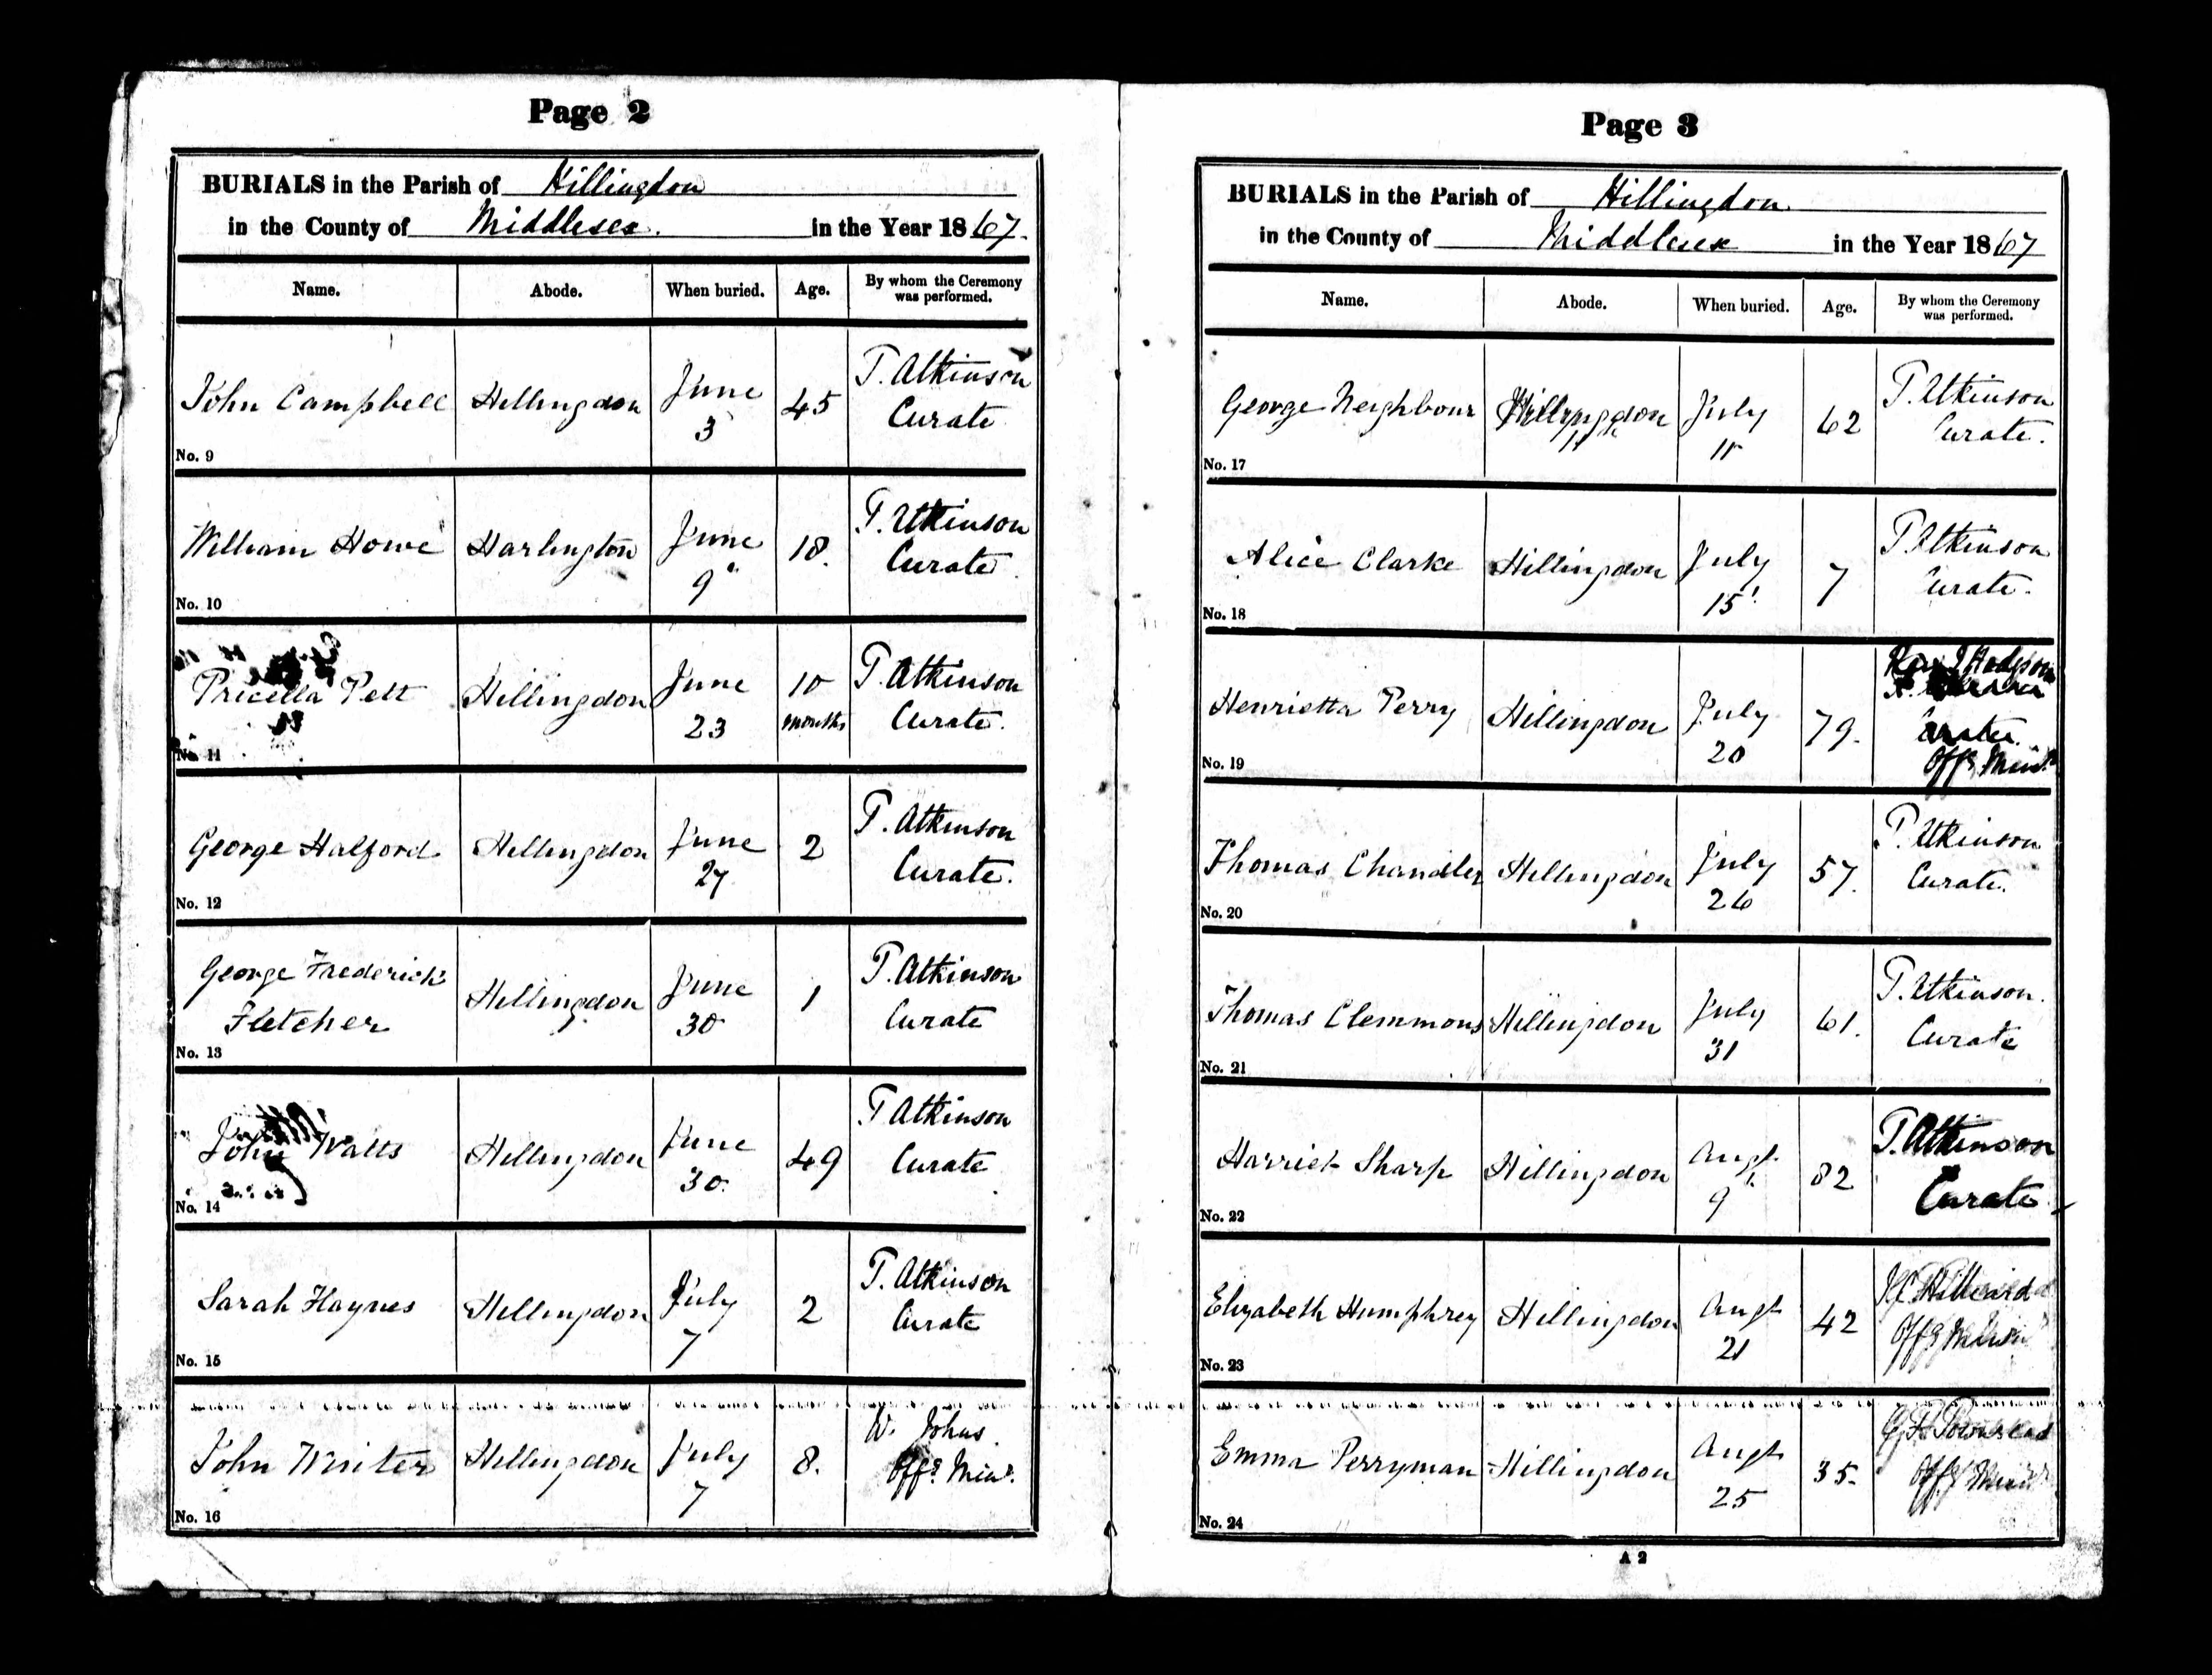 Page 2
BURIALS in the Parish of Hillingdon
in the County of Middlesex. in the Year 1867.
Name. Abode. When buried. Age. By whom the Ceremony
was performed.
John Campbell Hillingdon June 3 45 T. Atkinson
Curate
No. 9
William Howe Harlington June 9 18. T. Atkinson
Curate
No. 10
Pricella Pelt Hillingdon June 23 10 months T. Atkinson
Curate.
No. 11
George Halford Hillingdon June 27 2 T. Atkinson
Curate.
No. 12
George Frederick
Fletcher Hillingdon June 30 1 T. Atkinson
Curate
No. 13
John Watts Hillingdon June 30. 49 T Atkinson
Curate
No. 14
Sarah Haynes Hillingdon July 7 2 T. Atkinson
Curate
No. 15
John Winter Hillingdon July 7 8. W. Johns.
Offg. Minr.
No. 16
Page 3
BURIALS in the Parish of Hillingdon.
in the County of Middlesex in the Year 1867
Name. Abode. When buried. Age. By whom the Ceremony
was performed.
George Neighbour Hillingdon July 62 T. Atkinson
Curate.
No. 17
Alice Clarke Hillingdon July 15 7 T. Atkinson
Curate.
No. 18
Henrietta Perry Hillingdon July 20 79. Hodgson
Curate.
Offg Minr
No. 19
Thomas Chandler Hillingdon July 26 57. T. Atkinson
Curate.
No. 20
Thomas Clemmons Hillingdon July 31 61. T. Atkinson.
Curate
No. 21
Harriet Sharp Hillingdon Augt. 9 82 T. Atkinson
Curate
No. 22
Elizabeth Humphrey Hillingdon Augt 21 42 Hilliard
Offg Minr
No. 23
Emma Perryman Hillingdon Augt 25 35. Townsend
Offg Minr
No. 24
A 2